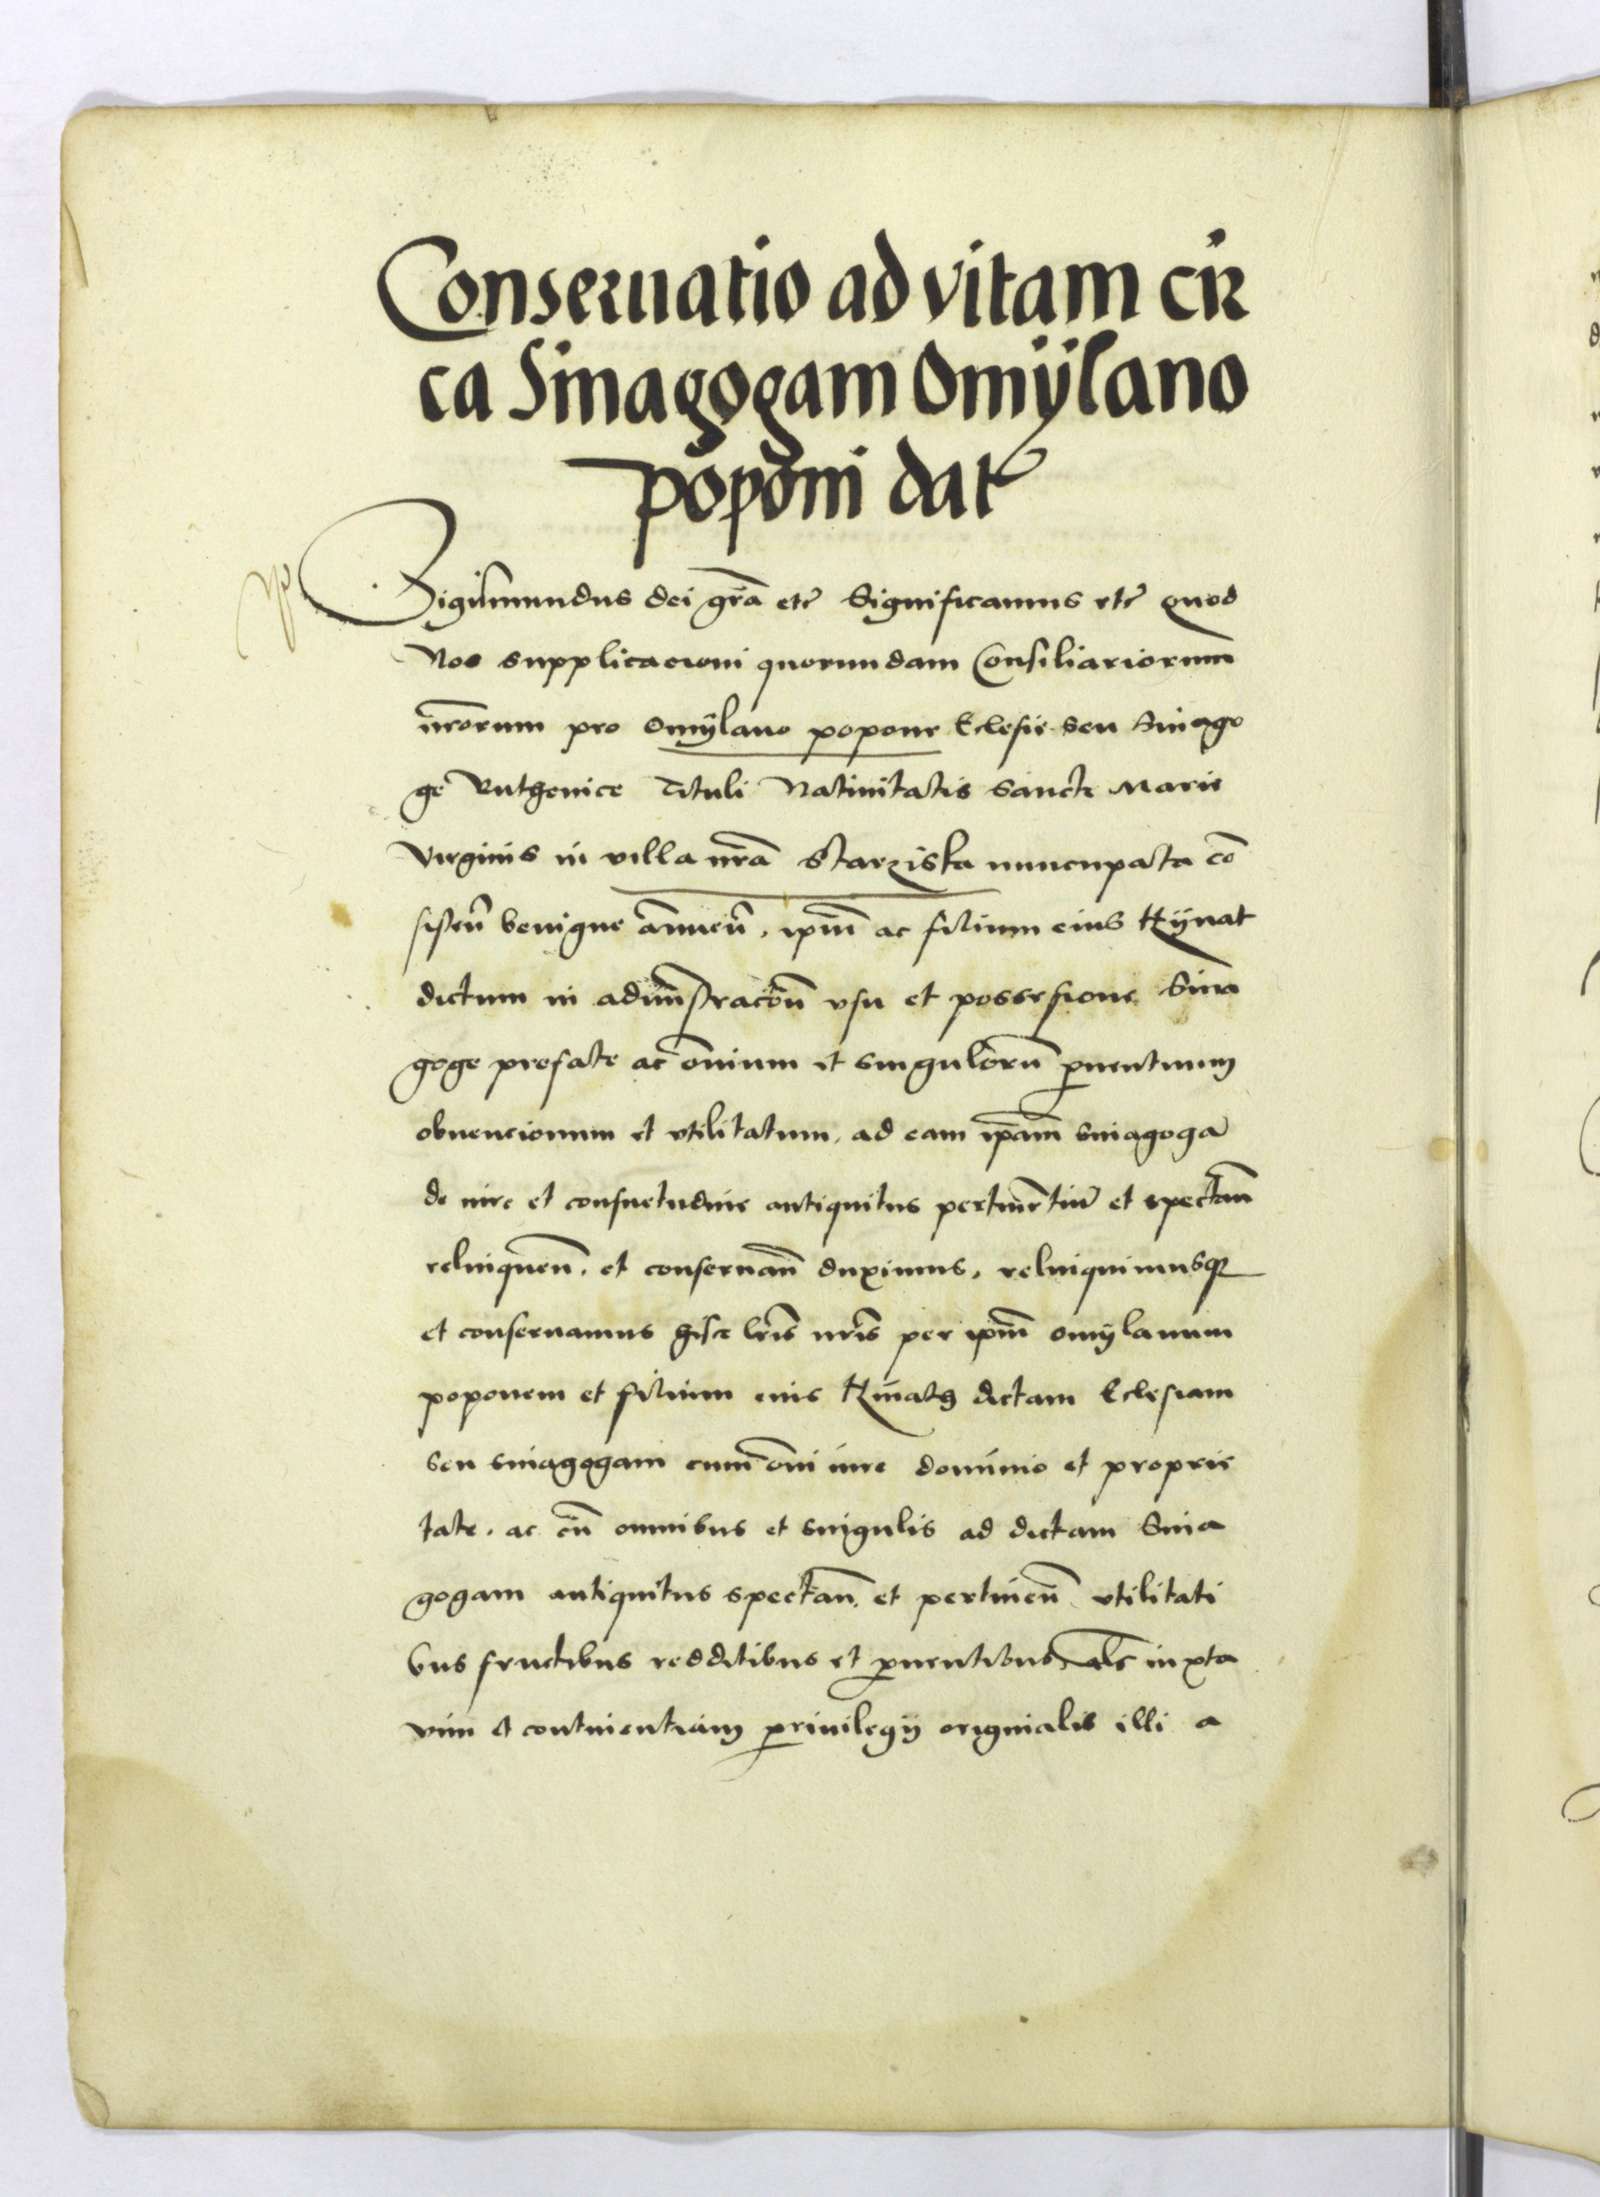 Conseruatio ad vitam cir
ca Sinagogam Omÿlano
poponi dat̃
Sigismundus dei gr̃a etc̃ Significamus etc̃ quod
Nos supplicacioni quorundam Consiliariorum
nr̃orum pro Omÿlano popone Eclesie seu Sinago
ge Ruthenice Tituli Natiuitatis Sancte Marie
Virginis in villa nr̃a Starziska nuncupata cõ
sisteñ benigne añnueñ, ip̃m ac filium eius Hÿnat
dictum in admĩstracoñ vsu et possessione Sina
goge prefate ac om̃ium et singulorũ ꝓuentuum
obuencionum et vtilitatum, ad eam ip̃am sinagogã
de iure et consuetudine antiquitus pertinẽtiũ et spectañ
relinqueñ, et conseruañ duximus, relinquimusqꝫ
et conseruamus hisce lr̃is nr̃is per ip̃m Omÿlanum
poponem et filium eius Hinatꝫ dictam Eclesiam
seu sinagogam cum om̃i iure dominio et proprie
tate, ac cũ omnibus et singulis ad dictam Sina
gogam antiquitus spectañ, et pertineñ vtilitati
bus fructibus redditibus et ꝓuentibus, al̃s iuxta
vim et continentiam priuilegÿ originalis illi a